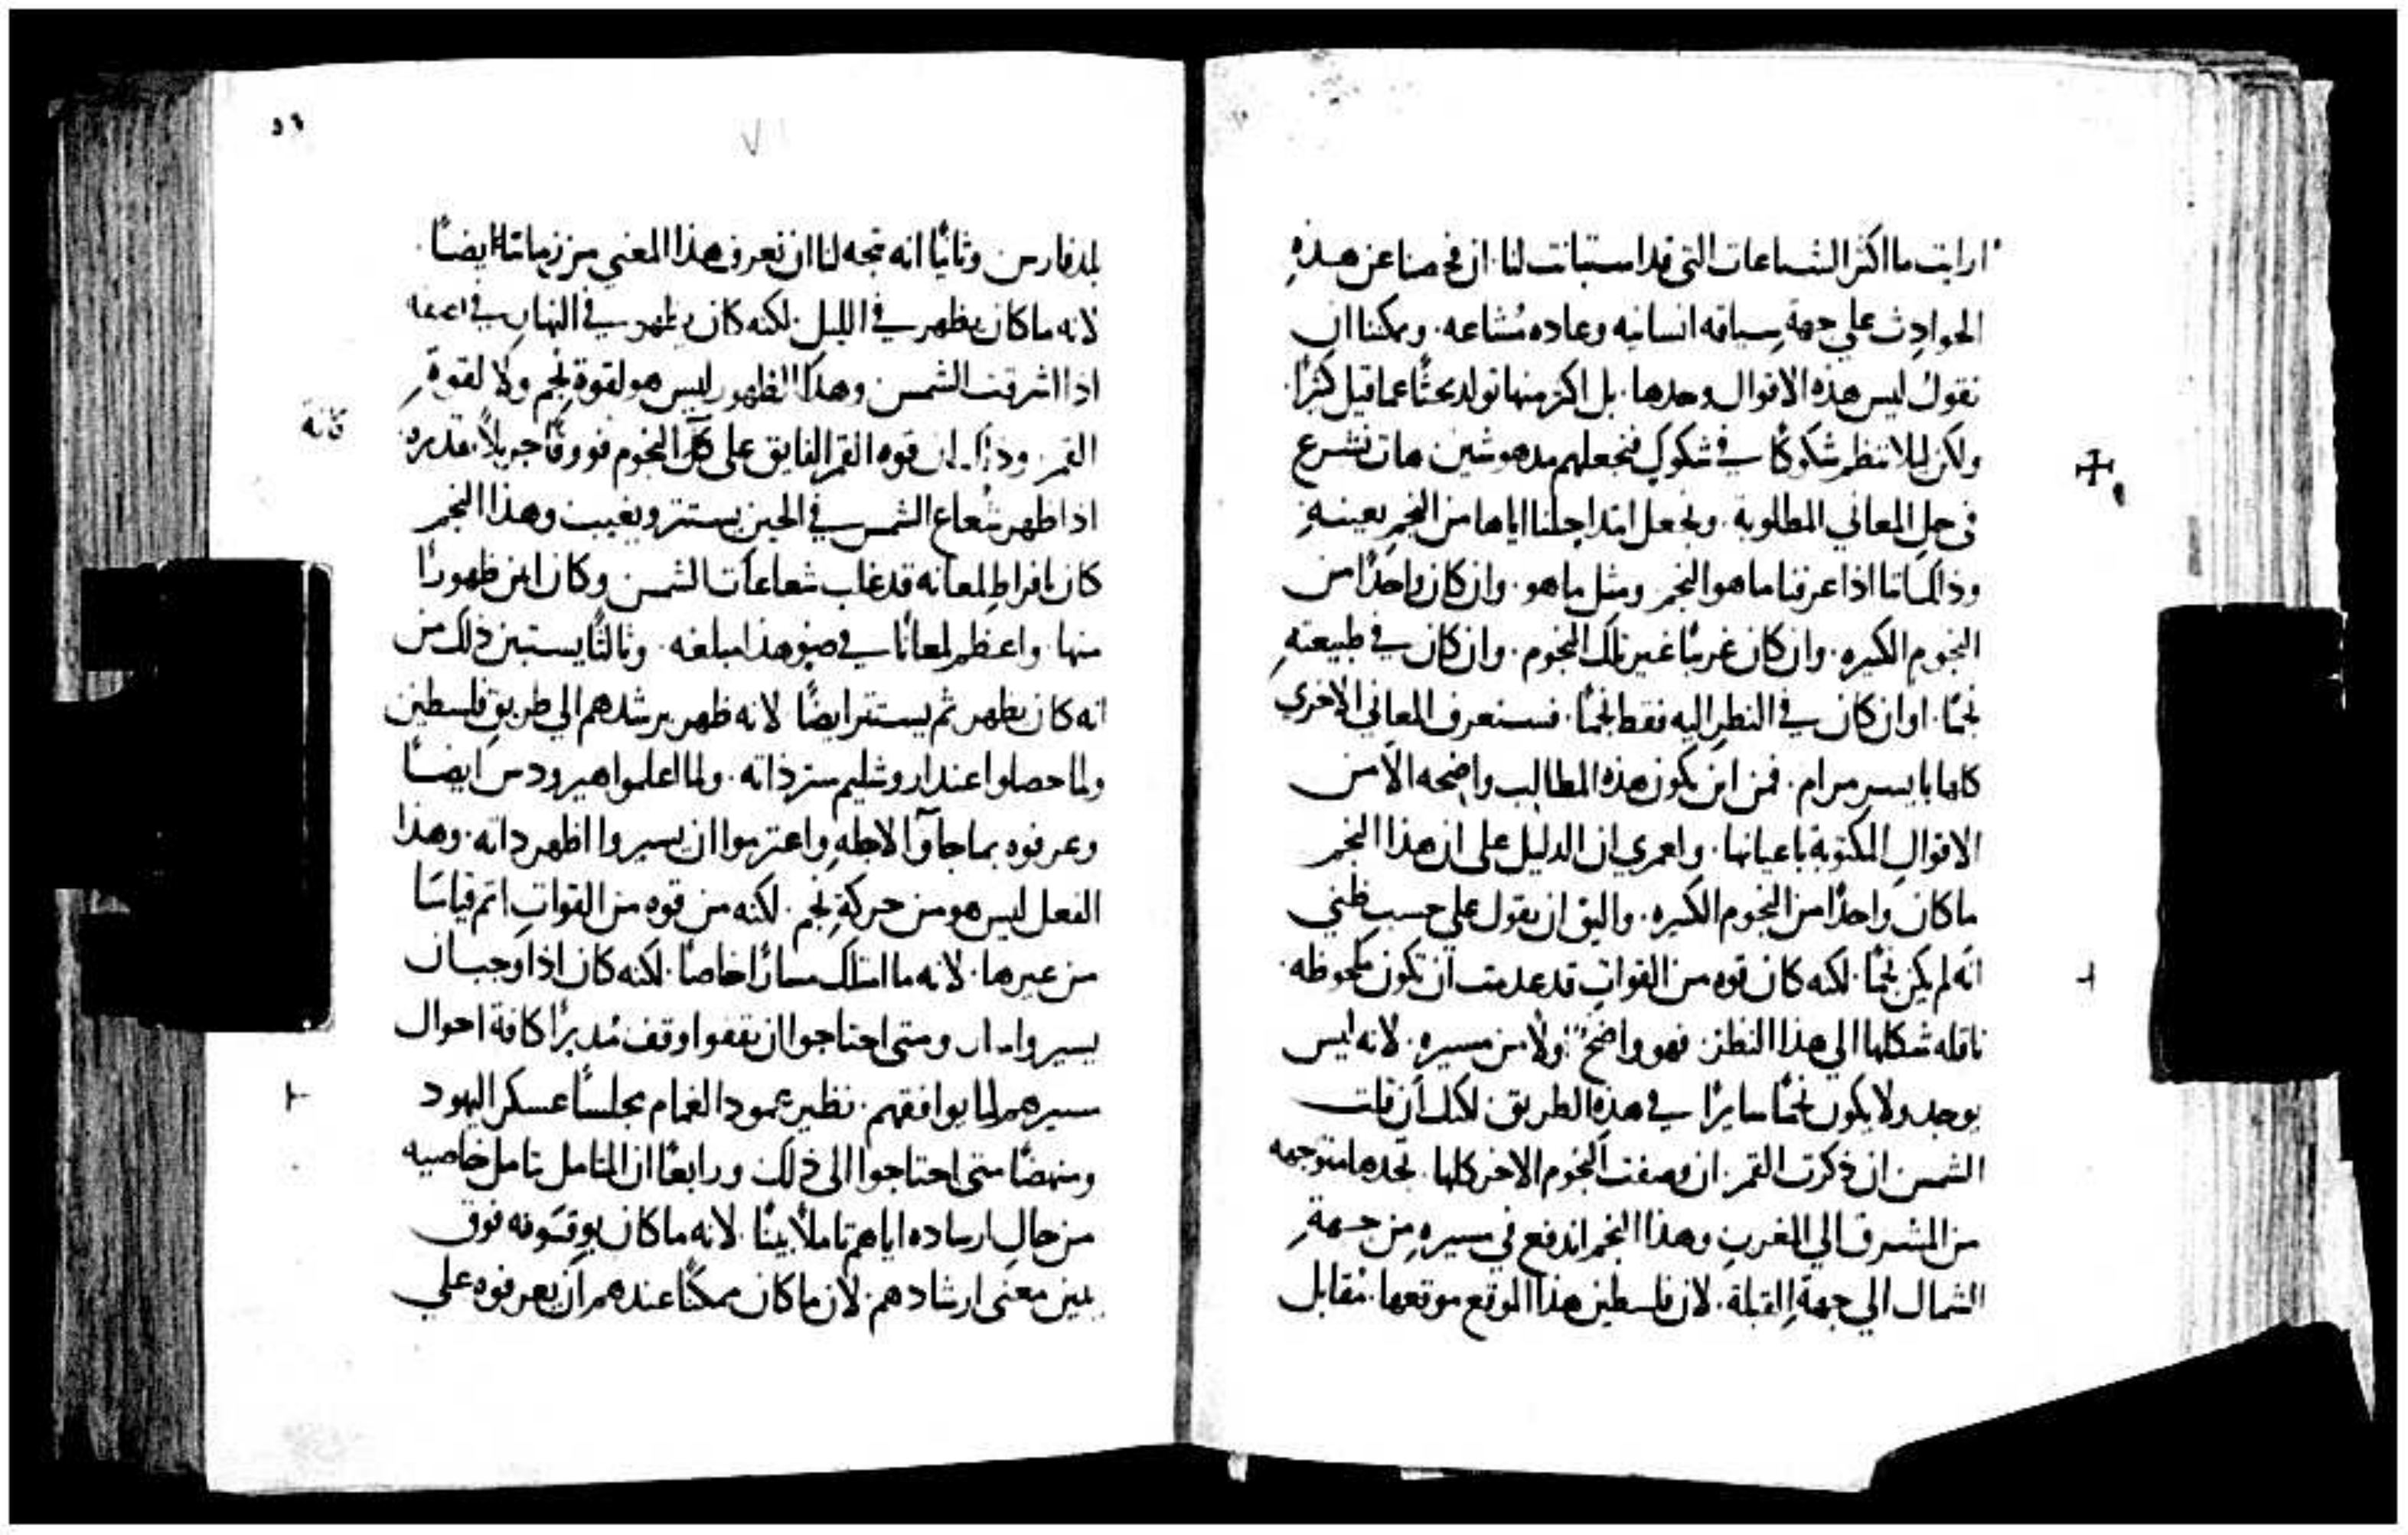 ارايت ما اكثر الشناعات التي قد استبانت لنا. ان فحصنا عن هذهِ
الحوادِث علي جهةِ سياقه انسانيه وعاده مُشاعه. ويمكننا ان
نقول ليس هذه الاقوال وحدها. بل اكثر منها تولد بحثًا عما قيل كثيرًا.
ولكن ليلا ننظم شكوكًا في شكوكٍ فنجعلهم مدهوشين هات نشرع
في حلِ المعاني المطلوبة. ونجعل ابتدا حلنا اياها من النجمِ بعينهِ
وذاك اننا اذا عرفنا ما هو النجم ومثل ما هو. وان كان واحدًا من
النجومِ الكثيره. وان كان غريبًا غير تلك النجوم. وان كان في طبيعتهِ
نجمًا. او ان كان في النظرِ اليه فقط نجمًا. فسنعرف المعاني الاخري
كلها بايسرِ مرام. فمن اين يكون هذه المطالب واضحه الا من
الاقوالِ المكتوبة باعيانها. ولعمري ان الدليل علي ان هذا النجم
ما كان واحدًا من النجوم الكثيره. واليق ان يقول علي حسبِ ظني
انه لم يكن نجمًا. لكنه كان قوه من القواتِ قد عدمت ان تكون ملحوظه.
ناقله شكلها الي هذا النظر. فهو واضح اولًا من مسيرهِ. لانه ليس
يوجد ولا يكون نجمًا سايرًا في هذهِ الطريق. لكنك ان قلت
الشمس ان ذكرت القمر. ان وصفت النجوم الاخر كلها. تجدها متوجهه
من المشرق الي المغربِ وهذا النجم اندفع في مسيرهِ من جهةِ
الشمال الي جهةِ القبلة. لان فلسطين هذا الموقع موقعها. مقابل
٥٦
بلد فارس وثانيًا انه تجه لنا ان نعرف هذا المعني من زماننا ايضًا.
لانه ما كان يظهر في الليل. لكنه كان يظهر في النهارِ في
اذا اشرقت الشمس وهذا الظهور ليس هو لقوةِ نجم ولا لقوةِ
القمر. وذاك ان قوه القمر الفايق علي كل النجوم فووقًا جزيلًا. قدره
كانه
اذا ظهر شعاع الشمس في الحين يستتر ويغيب وهذا النجم
كان بافراطِ لمعانه قد غلب شعاعات الشمس وكان ابين ظهورًا
منها. واعظم لمعانًا في ضوٍ هذا مبلغه. وثالثًا يستبين ذلك من
انه كان يظهر ثم يستتر ايضًا لانه ظهر يرشدهم الي طريقِ فلسطين
ولما حصلوا عند اروشليم ستر ذاته. ولما اعلموا هيرودس ايضًا
وعرفوه بما جاوا لاجلهِ واعتزموا ان يسيروا اظهر داته. وهذا
الفعل ليس هو من حركةِ نجم. لكنه من قوه من القواتِ اتم قياسًا
من غيرها. لانه ما امتلك مسارًا خاصًا. لكنه كان اذا وجب ان
يسيروا سار ومتي احتاجوا ان يقفوا وقف مُدبرًا كافة احوال
سيرهم لما يوافقهم. نظير عمود الغمام مجلسًا عسكر اليهود
ومنهضًا متي احتاجوا الي ذلك ورابعًا ان المتامل يتامل خاصيه
من حالِ ارساده اياهم تاملًا بينًا. لانه ما كان يوقتونه فوق
يبين معني ارشادهم. لان ما كان ممكنًا عندهم ان يعرفوه علي